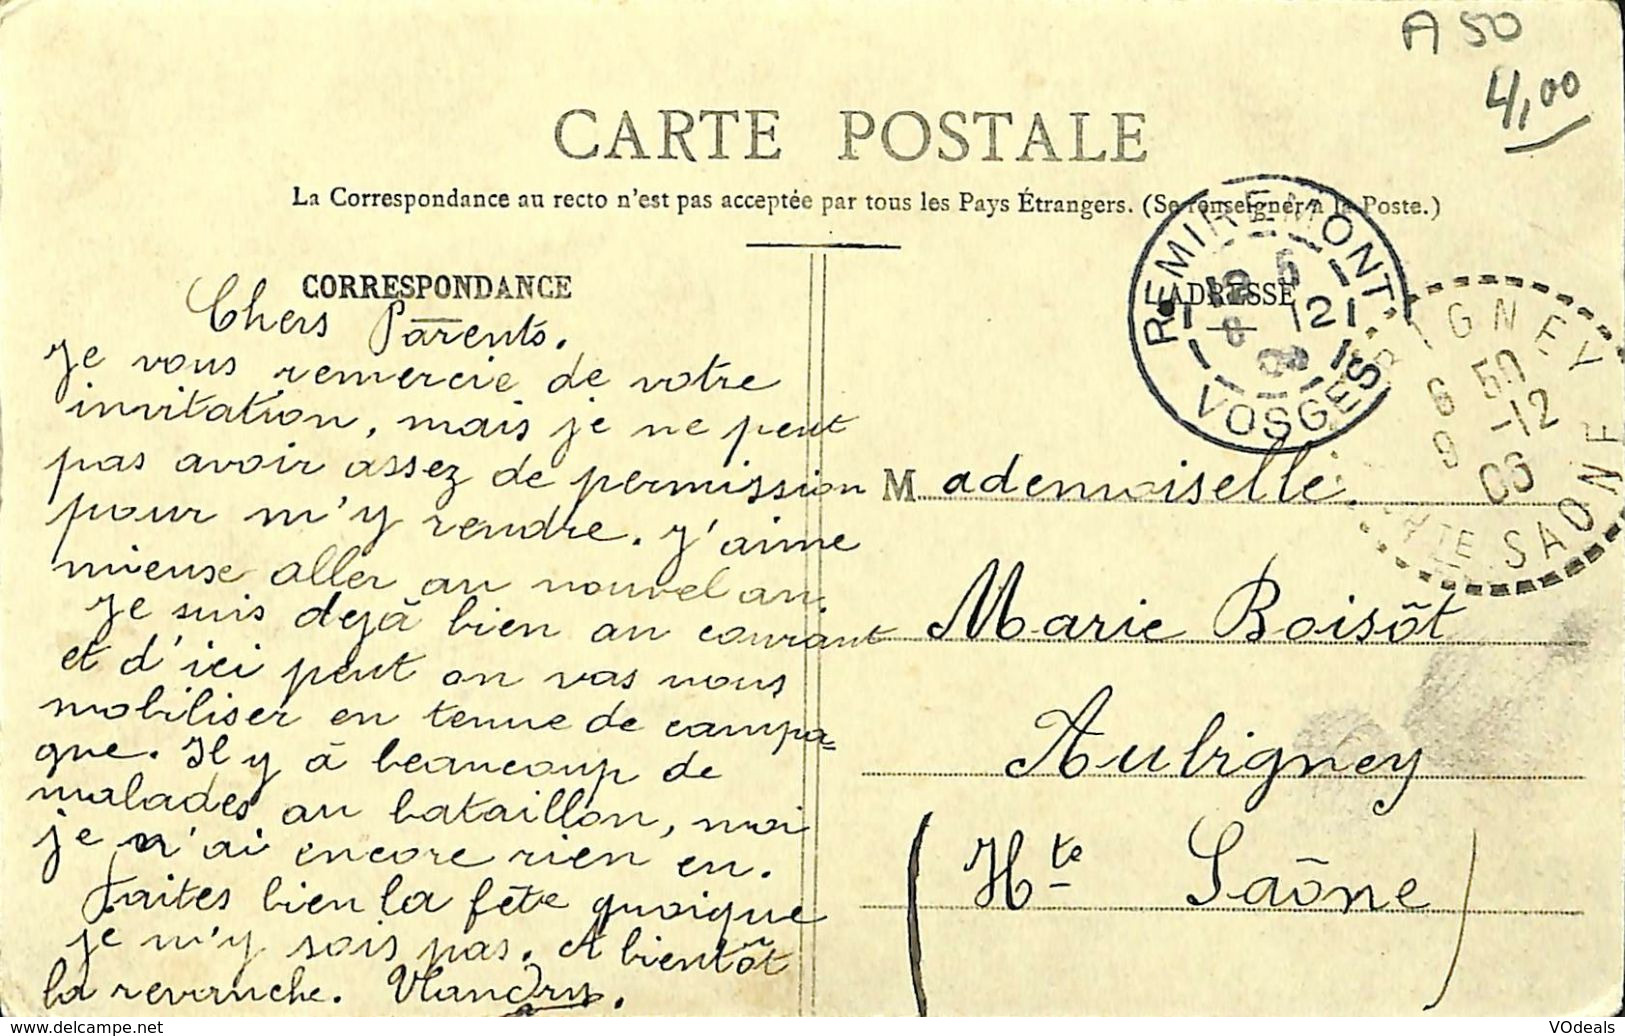 A 50
4,00
CARTE POSTALE
La Correspondance au recto n'est pas acceptée par tous les Pays Étrangers. (Se renseigner à la Poste.)
CORRESPONDANCE
Chers Parents.
Je vous remercie de votre
invitation, mais je ne peut
pas avoir assez de permission
pour m'y rendre. J'aime
mieuse aller au nouvel an.
Je suis dejà bien au courant
et d'ici peut on vas nous
mobiliser en tenue de campa=
gne. Il y à beaucoup de
malades au bataillon, moi
je n'ai encore rien eu.
Faites bien la fête quoique
je m'y sois pas. A bientôt
la revanche.
ADRESSE
REMIREMONT
12 5
8 12
VOSGES
AUBIGNEY
6 50
9 -12
06
HTE SAONE
Mademoiselle.
Marie Boisôt
Aubigney
(Hte Saône)
VOdeals
www.delcampe.net